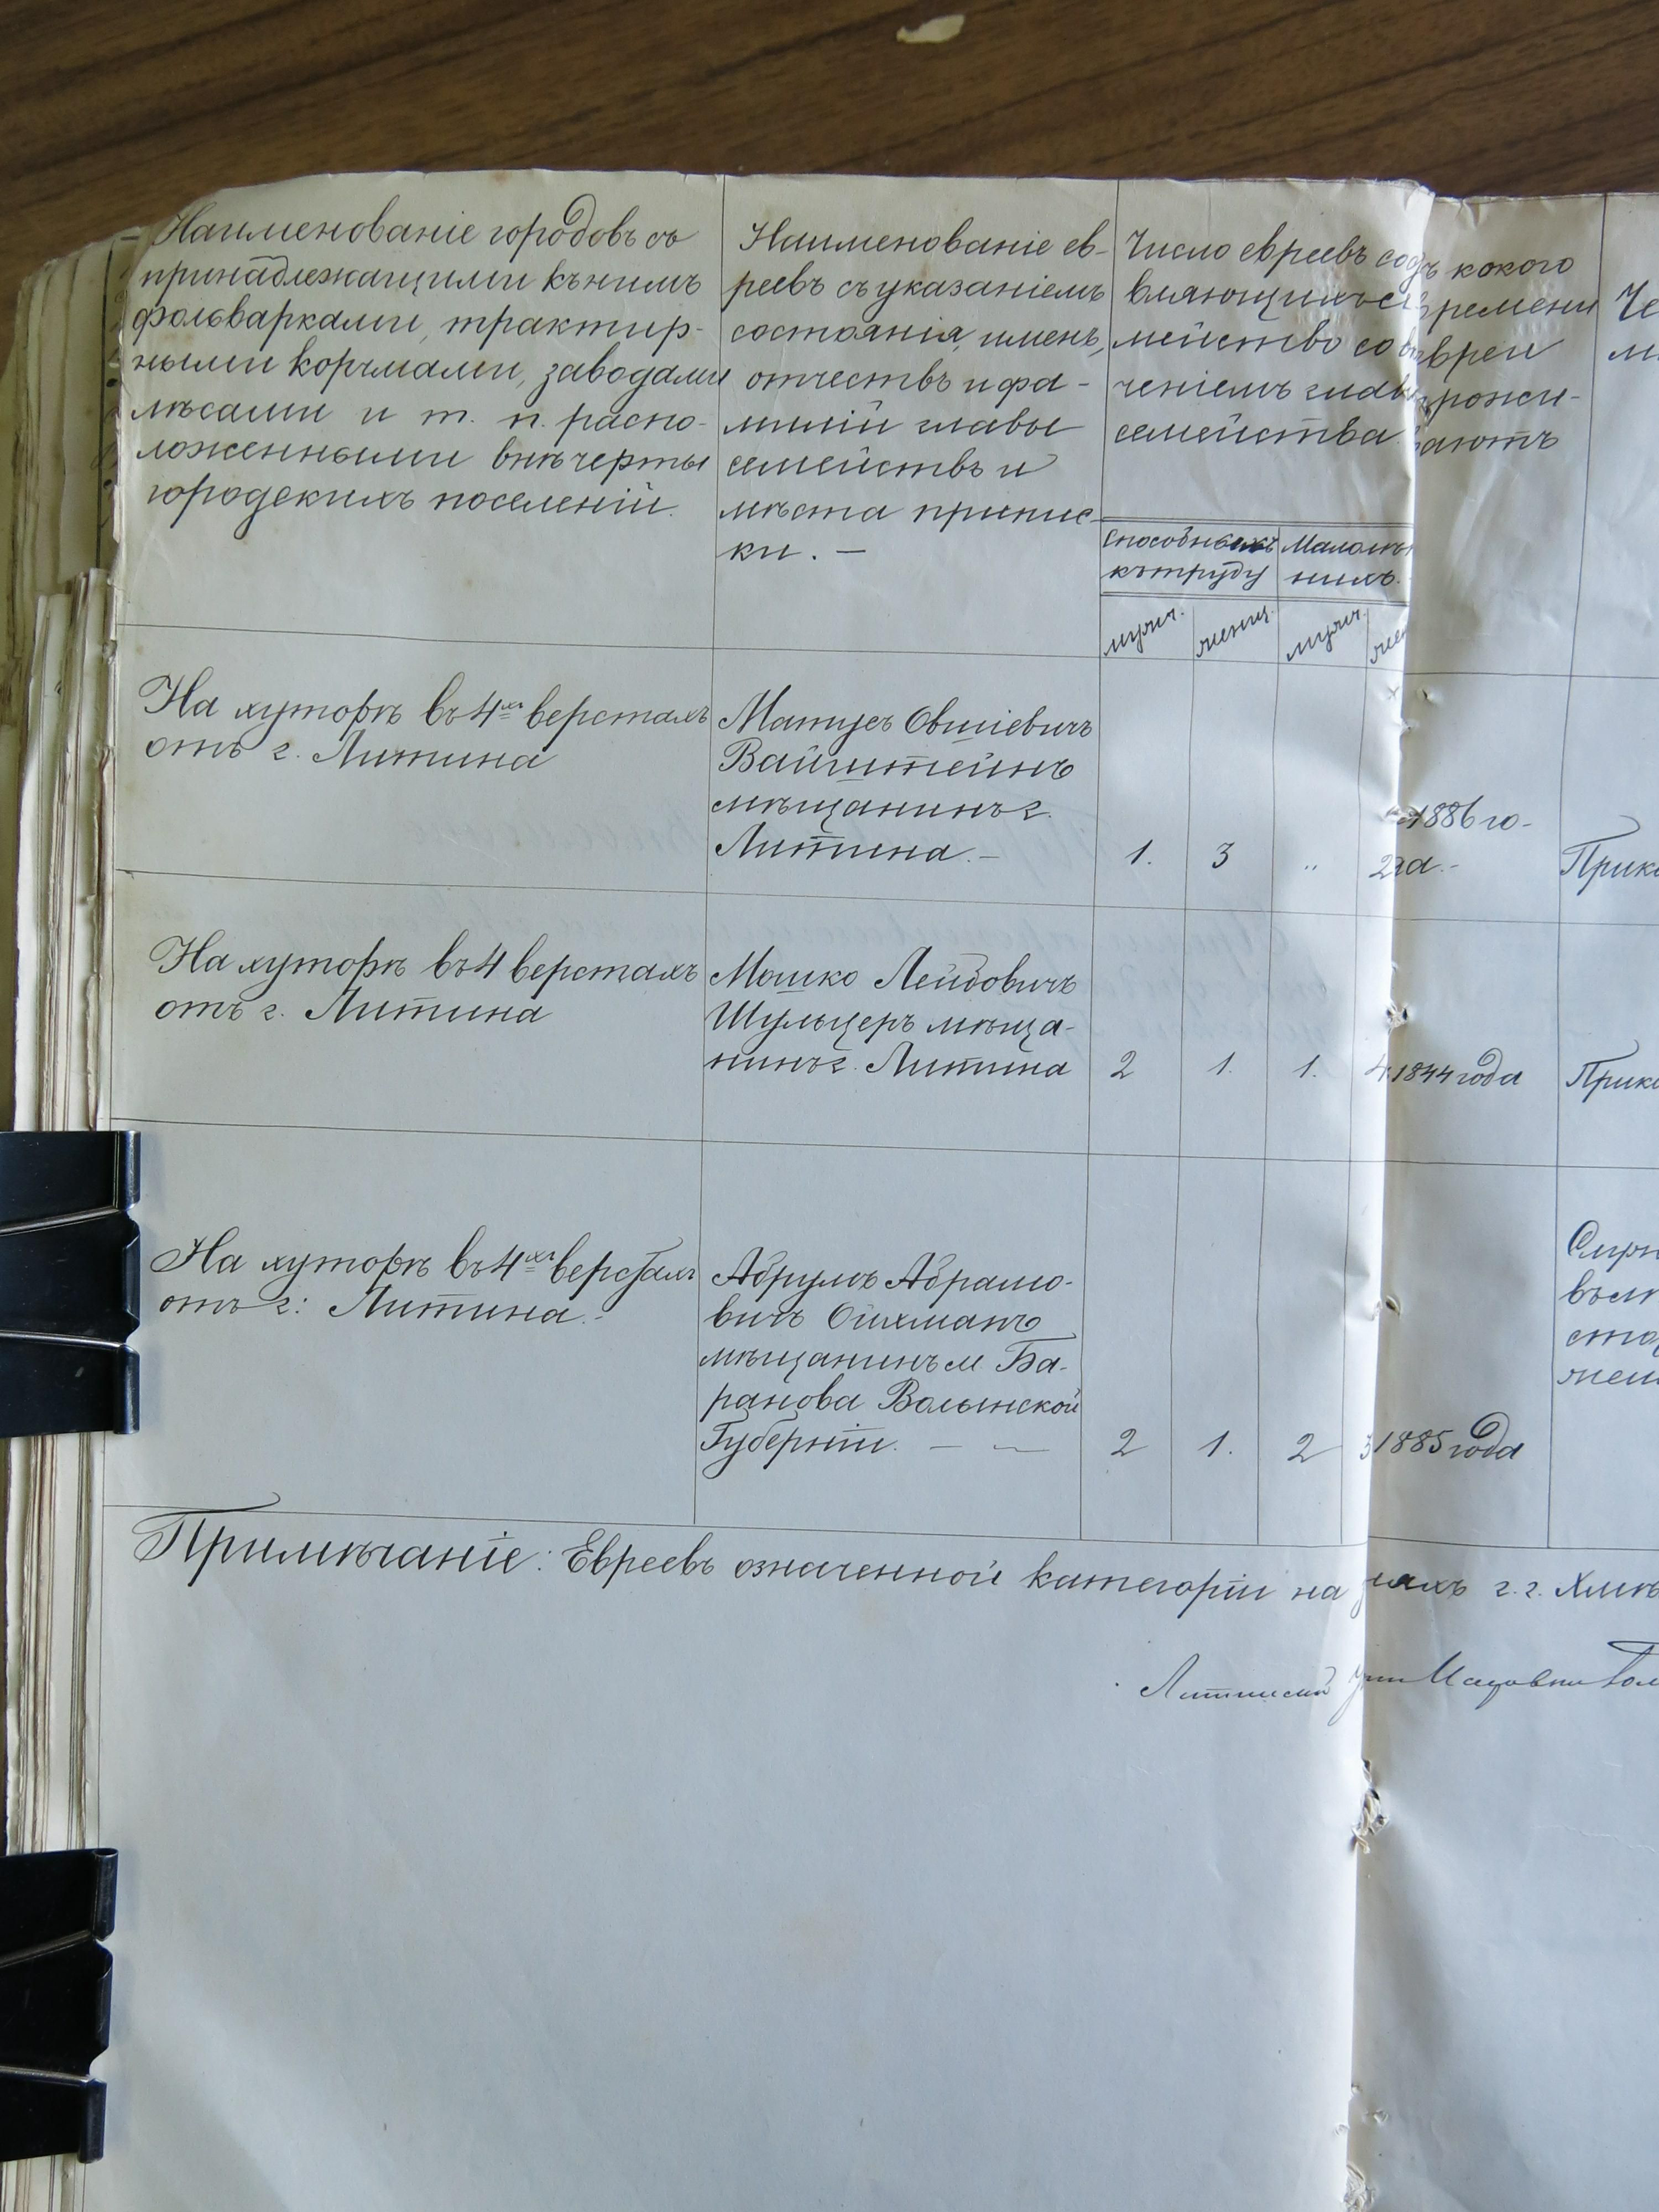 Наименованіе городовъ съ
принадлежащими къ нимъ
фольварками, трактир-
ными корчмами, заводами
лѣсами и т. п. распо-
ложенными внѣ черты
городскихъ поселеній.
Наименованіе ев-
реевъ съ указаніемъ
состоянія, именъ,
отчествъ и фа-
милій главы
семействъ и
мѣста припис-
ки. —
Число евреевъ
вляющихъ се
мейство со
ченіемъ главы
семейства
способныхъ
къ труду
Малолѣт
нихъ.
мужч.
женщ.
мужч.
жен
какого
времени
евреи
прожи-
ваютъ
Че
м
На хуторѣ въ 4хъ верстахъ
отъ г. Литина
Матусъ Овшіевичъ
Вайнштейнъ
мѣщанинъ г.
Литина. —
1. 3 „ 2
1886 го-
да. -
Прик
На хуторѣ въ 4 верстахъ
отъ г. Литина
Мошко Лейбовичъ
Шульцеръ мѣща-
нинъ г. Литина
2 1. 1. 4
1844 года
Прик
На хуторѣ въ 4хъ верстахъ
отъ г: Литина. -
Абрумъ Абрамо-
вичъ Ойхманъ
мѣщанинъ м. Ба-
ранова Волынской
Губерніи. — —
2 1. 2 3
1885 года
Служ
въ
сто
жен
Примѣчаніе: Евреевъ означенной категоріи на г. г. Хмѣ
Литинскій